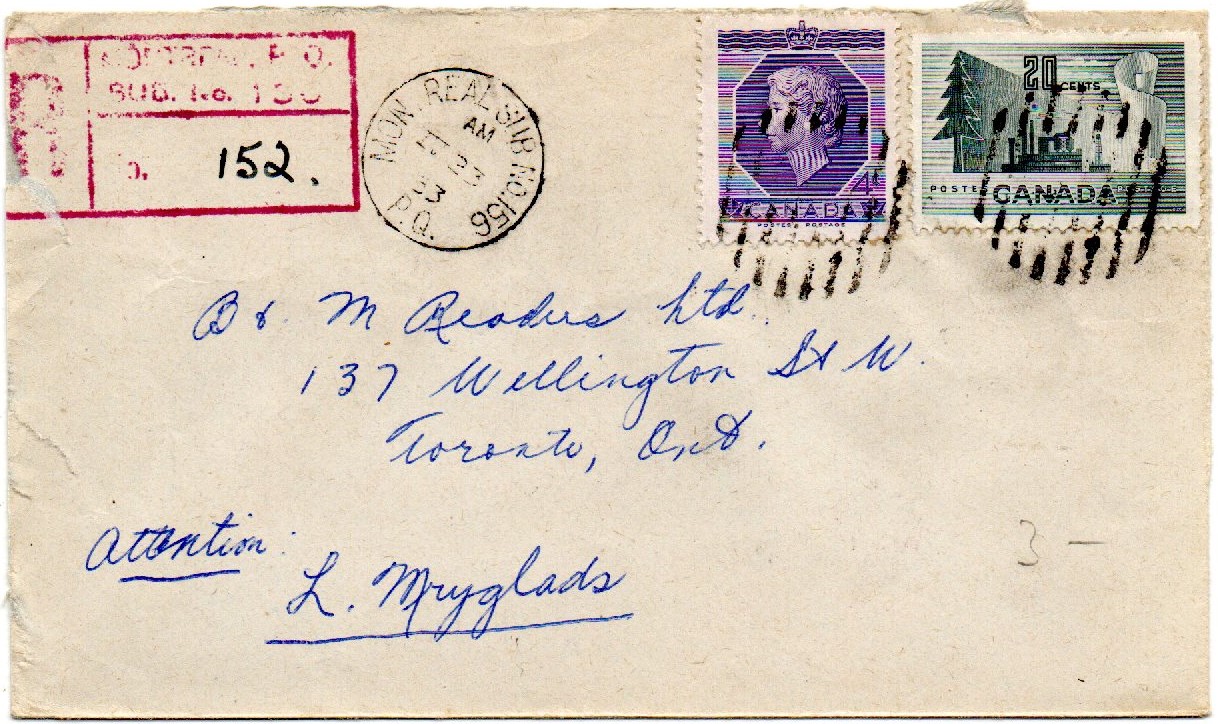 R
MONTREAL, P. Q.
SUB. No. 156
No. 152.
MONTREAL SUB NO. 156
AM
23
53
P.Q.
4¢
CANADA
POSTES POSTAGE
20 CENTS
POSTES POSTAGE
CANADA
B &. M Readers Ltd.
137 Wellington St W.
Toronto, Ont.
Attention:
L. Mryglads
3 –